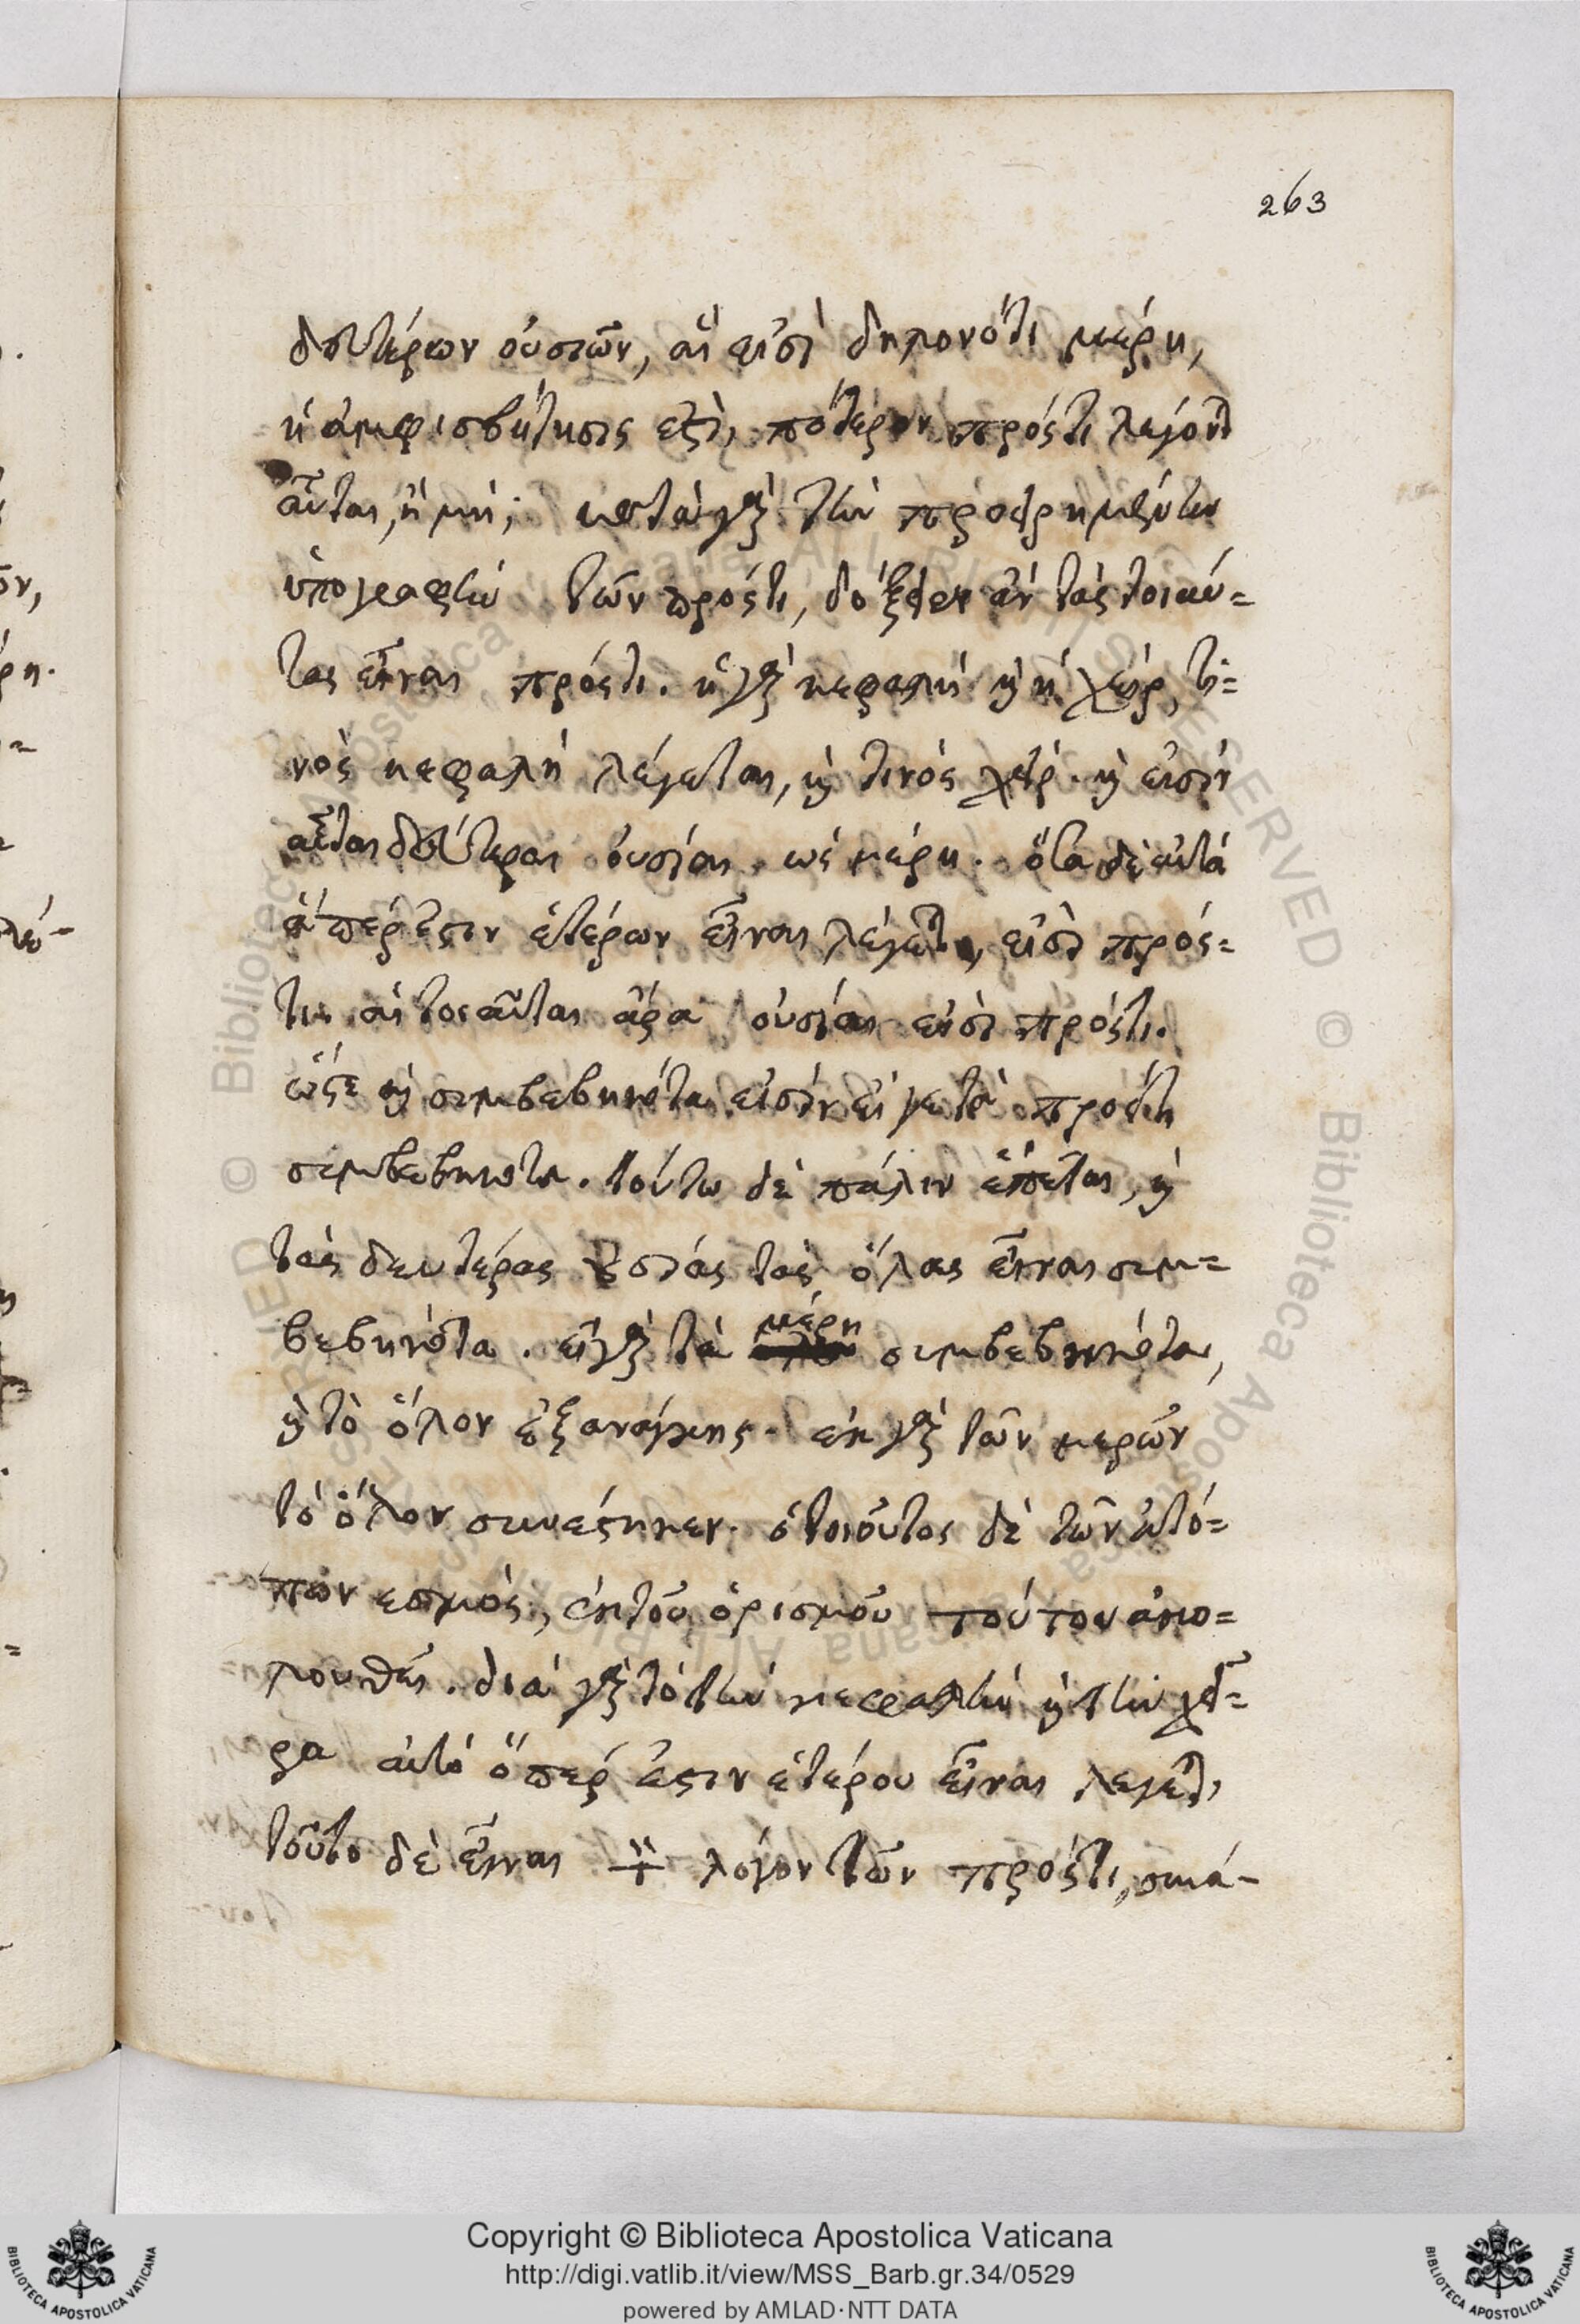 263
δευτέρων οὐσιῶν, αἵ εἰσὶ δηλονότι μέρη,
ἡ ἀμφισβήτησις ἐστὶ, πότερον πρός τι λέγοντ
αὗται, ἢ μή; κατὰ γὰρ τὴν προειρημένην
ὑπογραφὴν τῶν πρός τι, δόξειεν ἂν τὰς τοιαύ=
τας εἶναι πρός τι. ἡ γὰρ κεφαλὴ καὶ ἡ χεὶρ, τι=
νὸς κεφαλὴ λέγεται, καὶ τινὸς χείρ. καὶ εἰσὶν
αὗται δεύτεραι οὐσίαι ὡς μέρη. ὅσα δὲ αὐτὰ
ἅπερ ἐστιν ἑτέρων εἶναι λέγεται, εἰσὶ πρός=
τι. αἱ τοιαῦται ἄρα οὐσίαι εἰσὶ πρός τι.
ὥστε καὶ συμβεβηκότα εἰσὶν εἴγε τὰ πρός τι
συμβεβηκότα. τούτω δὲ πάλιν ἕπεται, καὶ
τὰς δευτέρας οὐσίας τὰς ὅλας εἶναι συμ=
βεβηκότα. εἰ γὰρ τὰ μέρη συμβεβηκότα,
καὶ τὸ ὅλον ἐξανάγκης. ἐκ γὰρ τῶν μερῶν
τὸ ὅλον συνέστηκεν. ὁ τοιοῦτος δὲ τῶν ἀτό=
πων ἑσμὸς, ἐκ τοῦ ὁρισμοῦ τούτου ἀκο=
λουθεῖ. διὰ γὰρ τὸ τὴν κεφαλὴν καὶ τὴν χεῖ=
ρα αὐτὸ ὅπερ ἐστιν ἑτέρου εἶναι λέγεται,
τοῦτο δὲ εἶναι τὸν λόγον τῶν πρός τι, συνά-
Copyright © Biblioteca Apostolica Vaticana
http://digi.vatlib.it/view/MSS_Barb.gr.34/0529
powered by AMLAD·NTT DATA